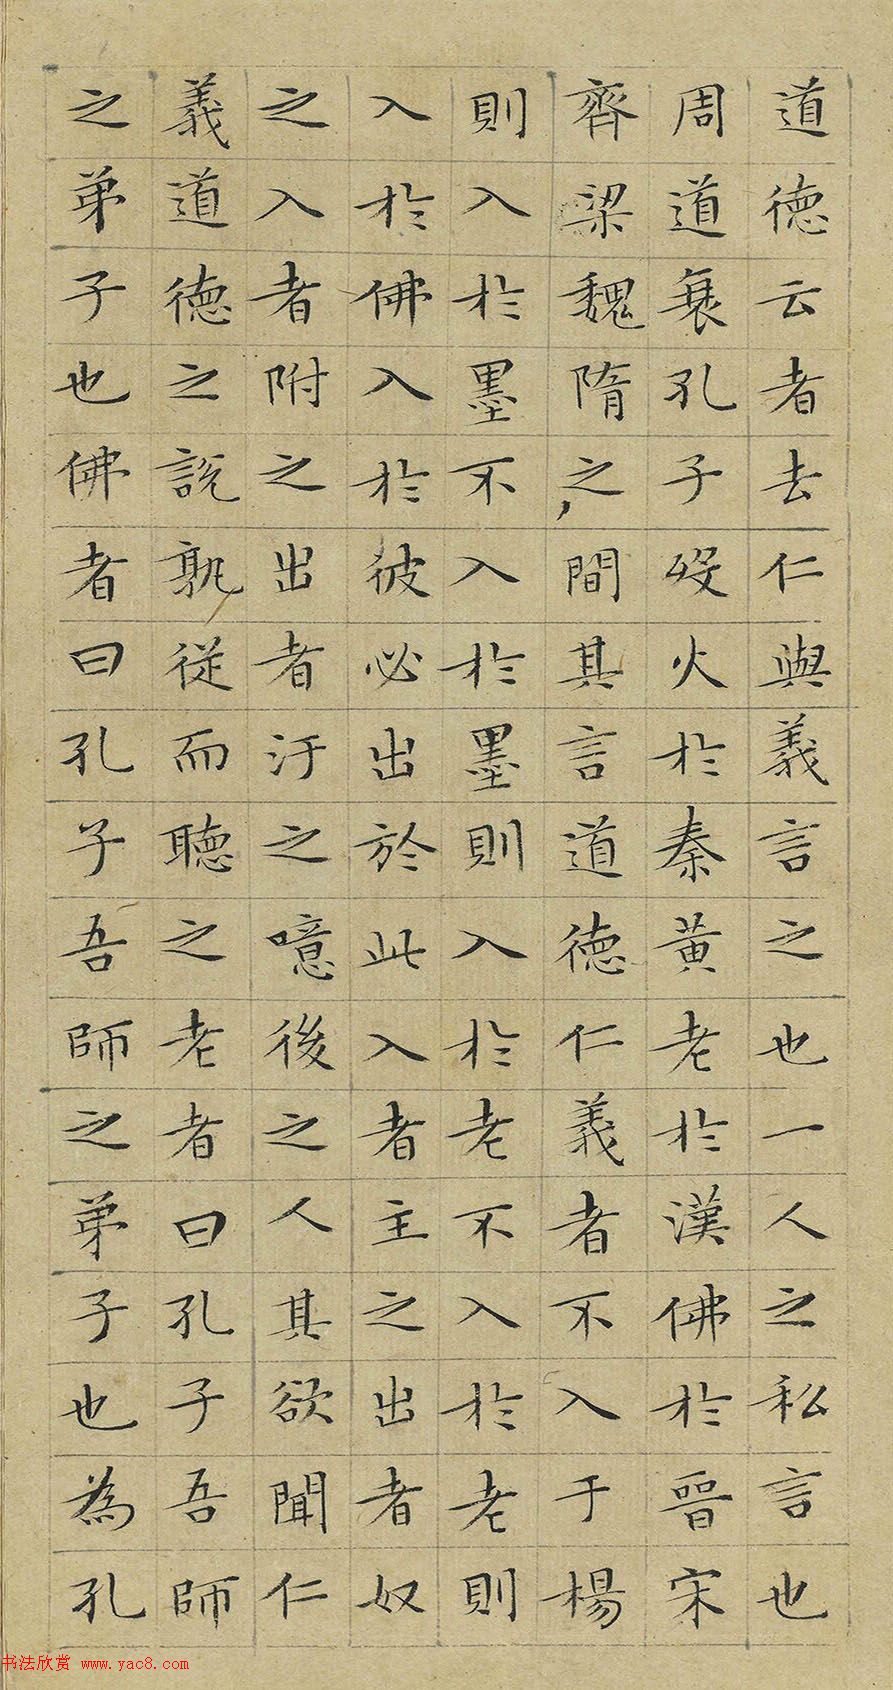 道德云者去仁與義言之也一人之私言也
周道衰孔子歿火於秦黃老於漢佛於晉宋
齊梁魏隋之間其言道德仁義者不入于楊
則入於墨不入於墨則入於老不入於老則
入於佛入於彼必出於此入者主之出者奴
之入者附之出者汙之噫後之人其欲聞仁
義道德之説孰從而聽之老者曰孔子吾師
之弟子也佛者曰孔子吾師之弟子也為孔
书法欣赏 www.yac8.com